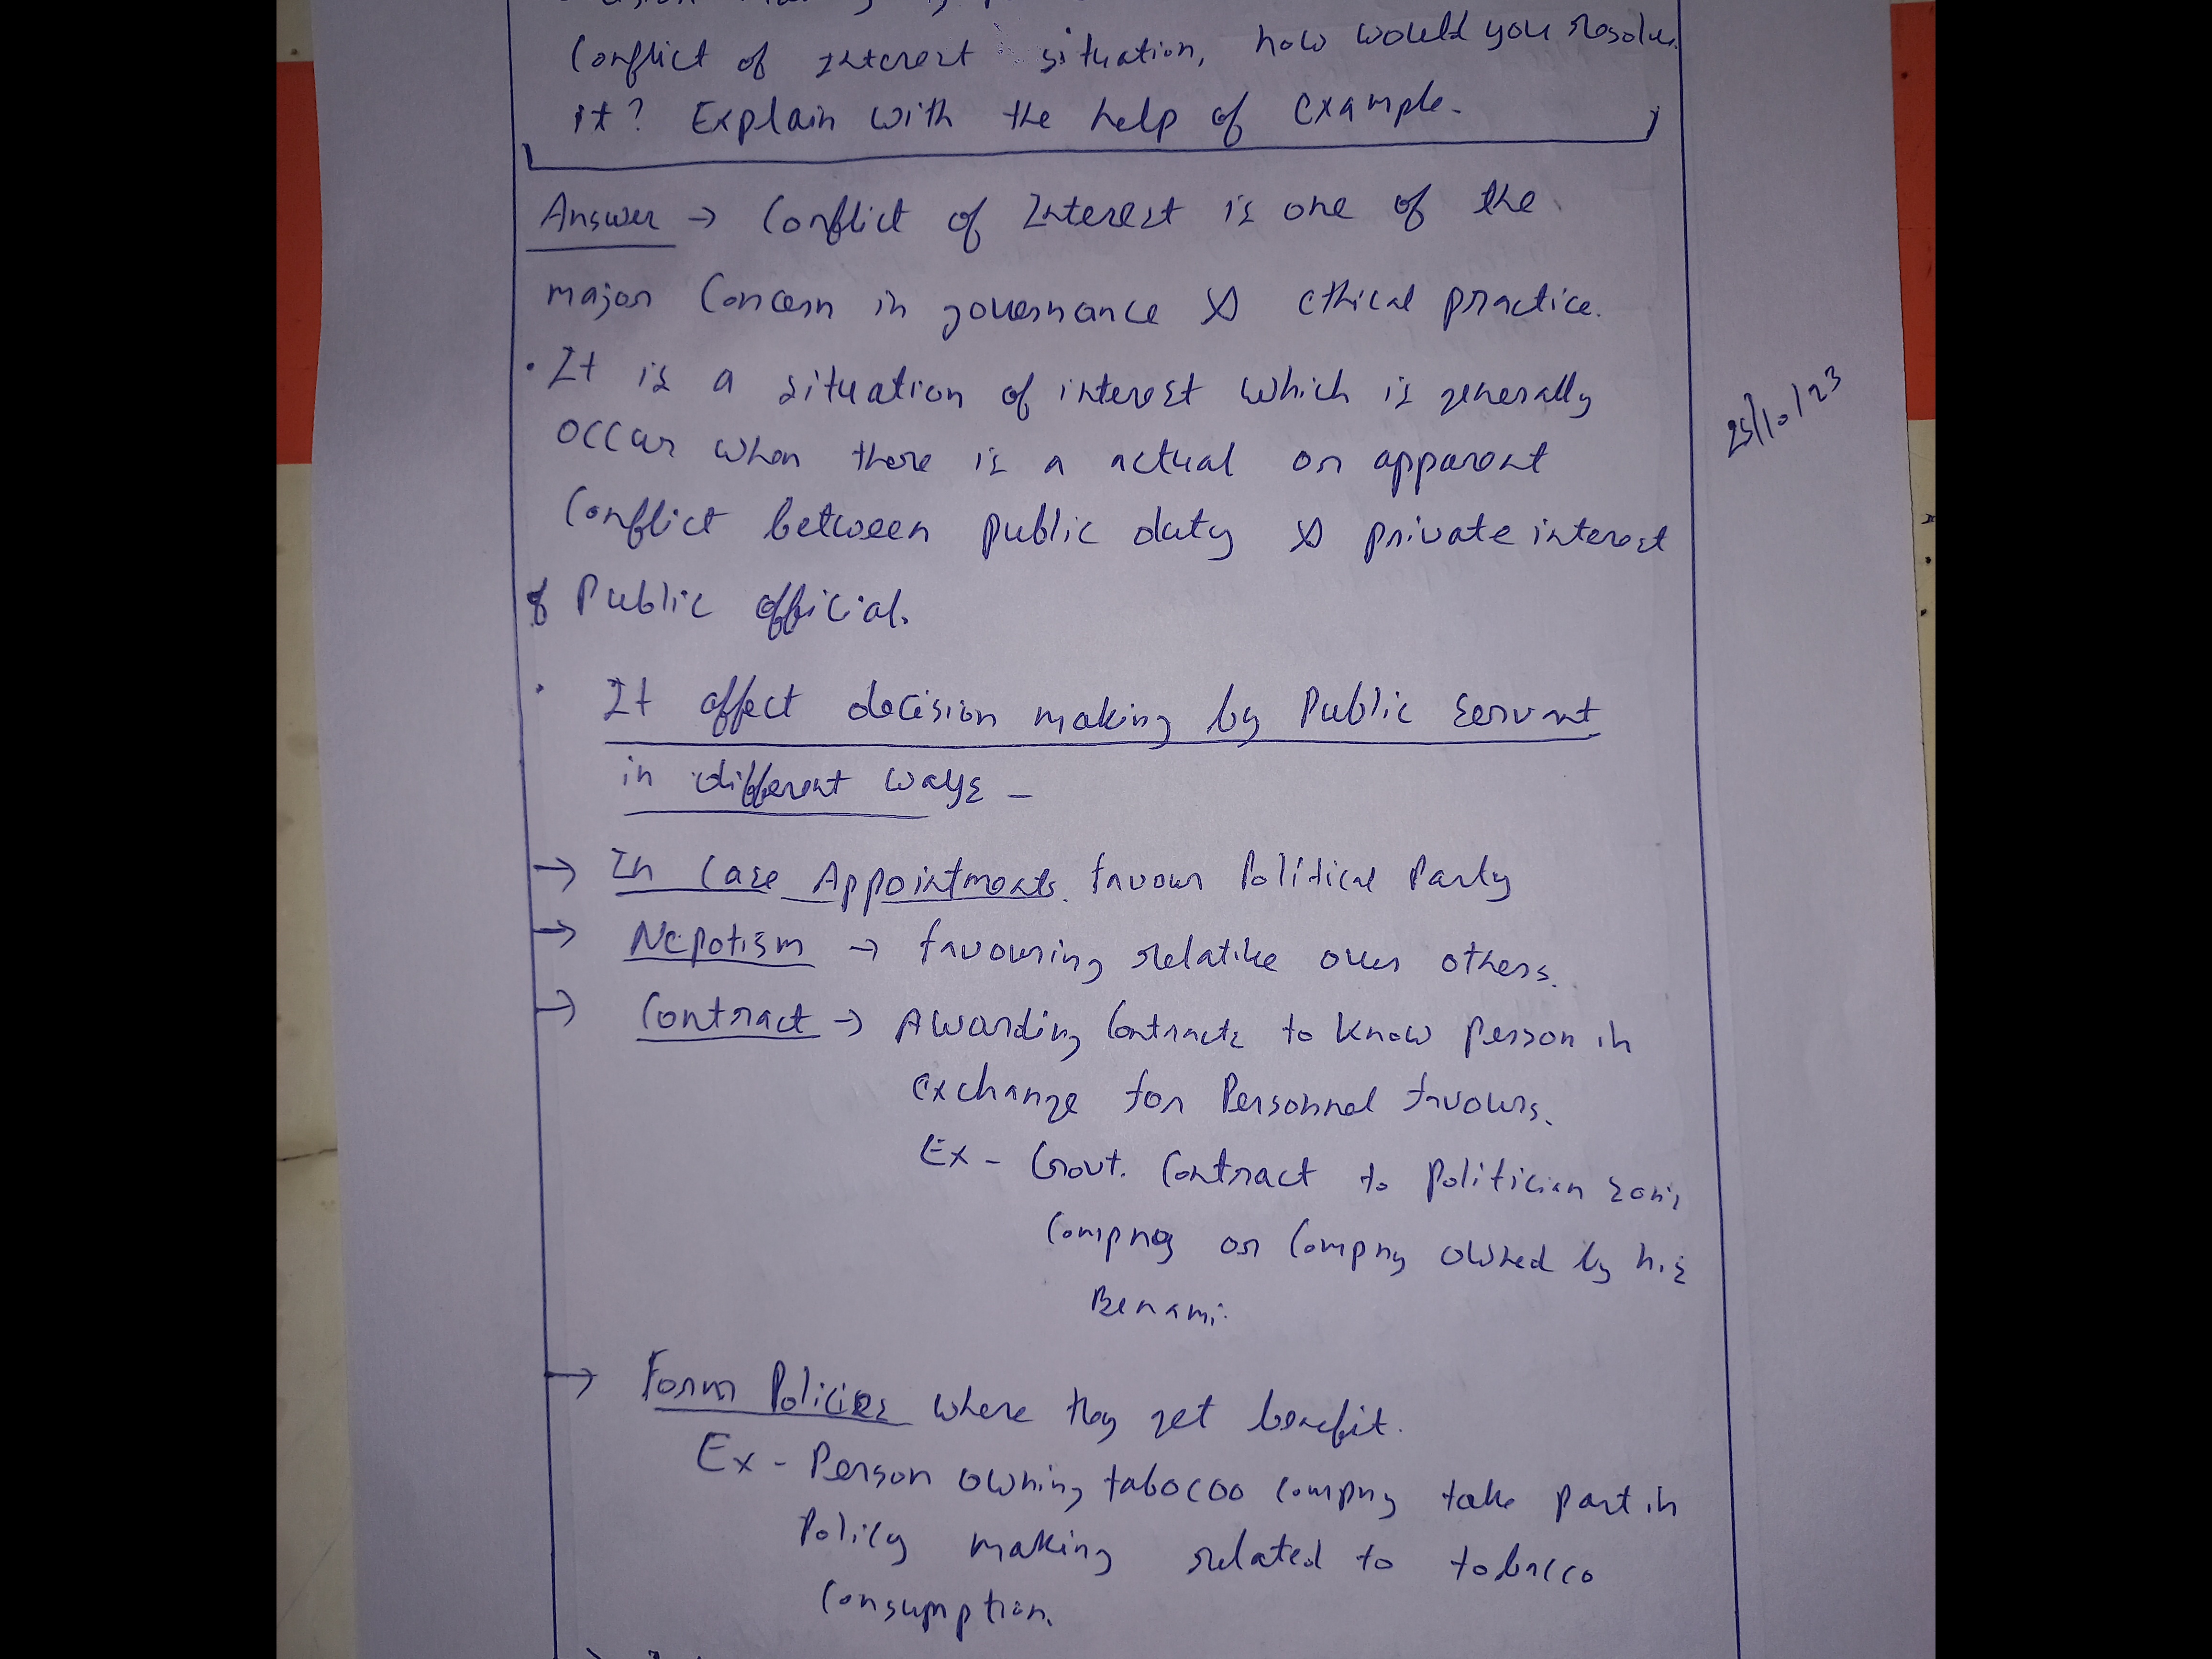 Conflict of Interest situation, how would you resolve
it? Explain with the help of Example.
Answer → Conflict of Interest is one of the
major Concern in governance & ethical practice.
• It is a situation of interest which is generally
occur when there is a actual or apparent
Conflict between public duty & private interest
of Public official.
25/10/23
• It affect decision making by Public Servant
in different ways –
→ In Case Appointments favour Political Party
→ Nepotism → favouring relative over others.
→ Contract → Awarding Contracts to know Person in
exchange for Personnel favours.
Ex - Govt. Contract to Politician son's
Compny or Compny owned by his
Benami.
→ Form Policies where they get benefit.
Ex - Person owning tabocoo Compny take part in
Policy making related to tobacco
Consumption.